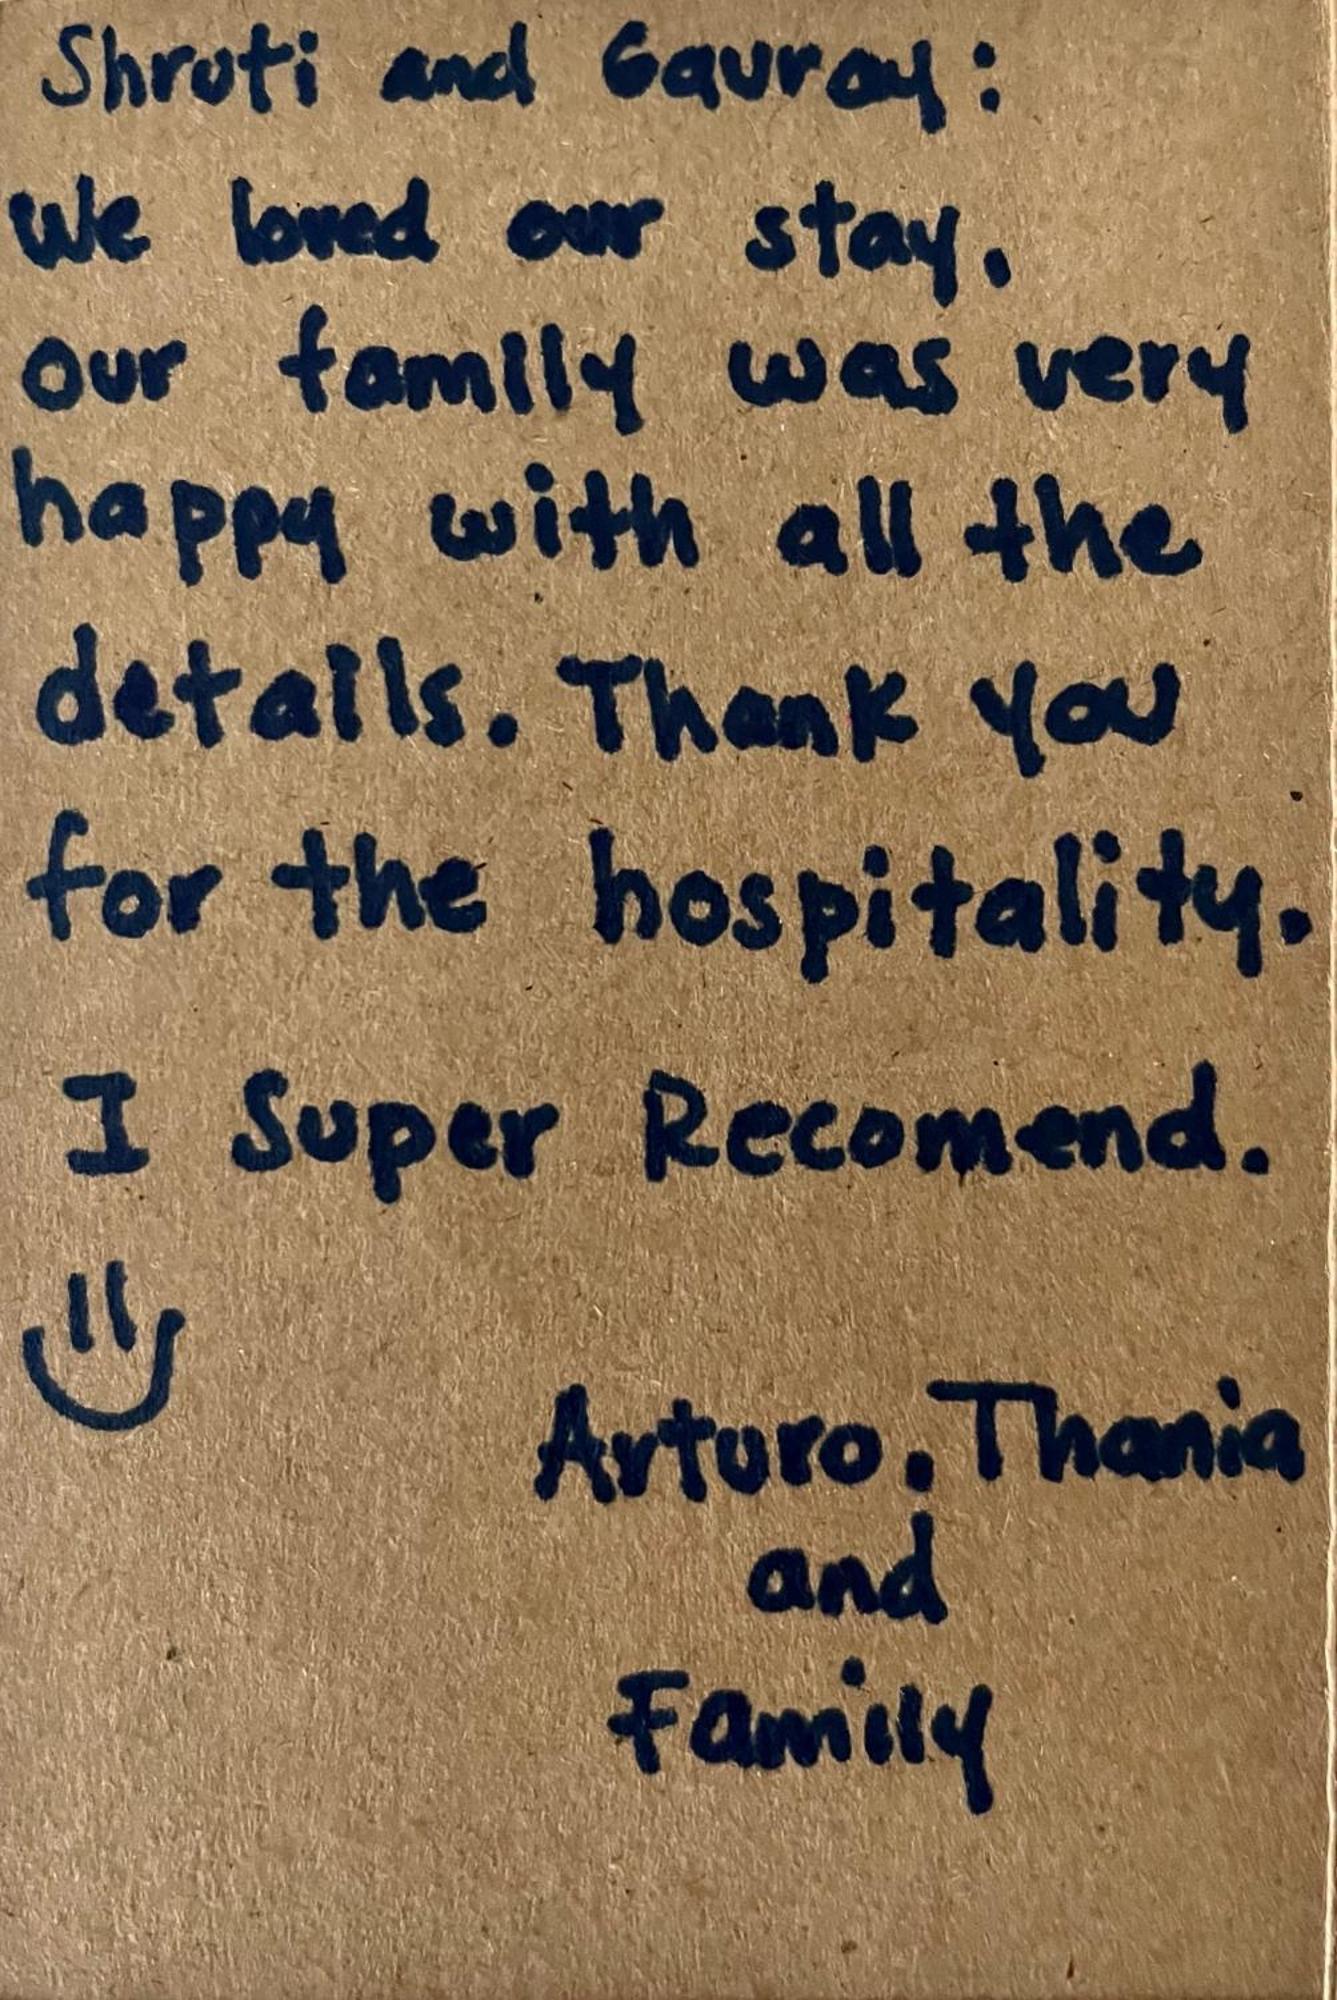 Shruti and Gauray:
We loved our stay.
our family was very
happy with all the
details. Thank you
for the hospitality.
I Super Recomend.
Arturo, Thania
and
Family